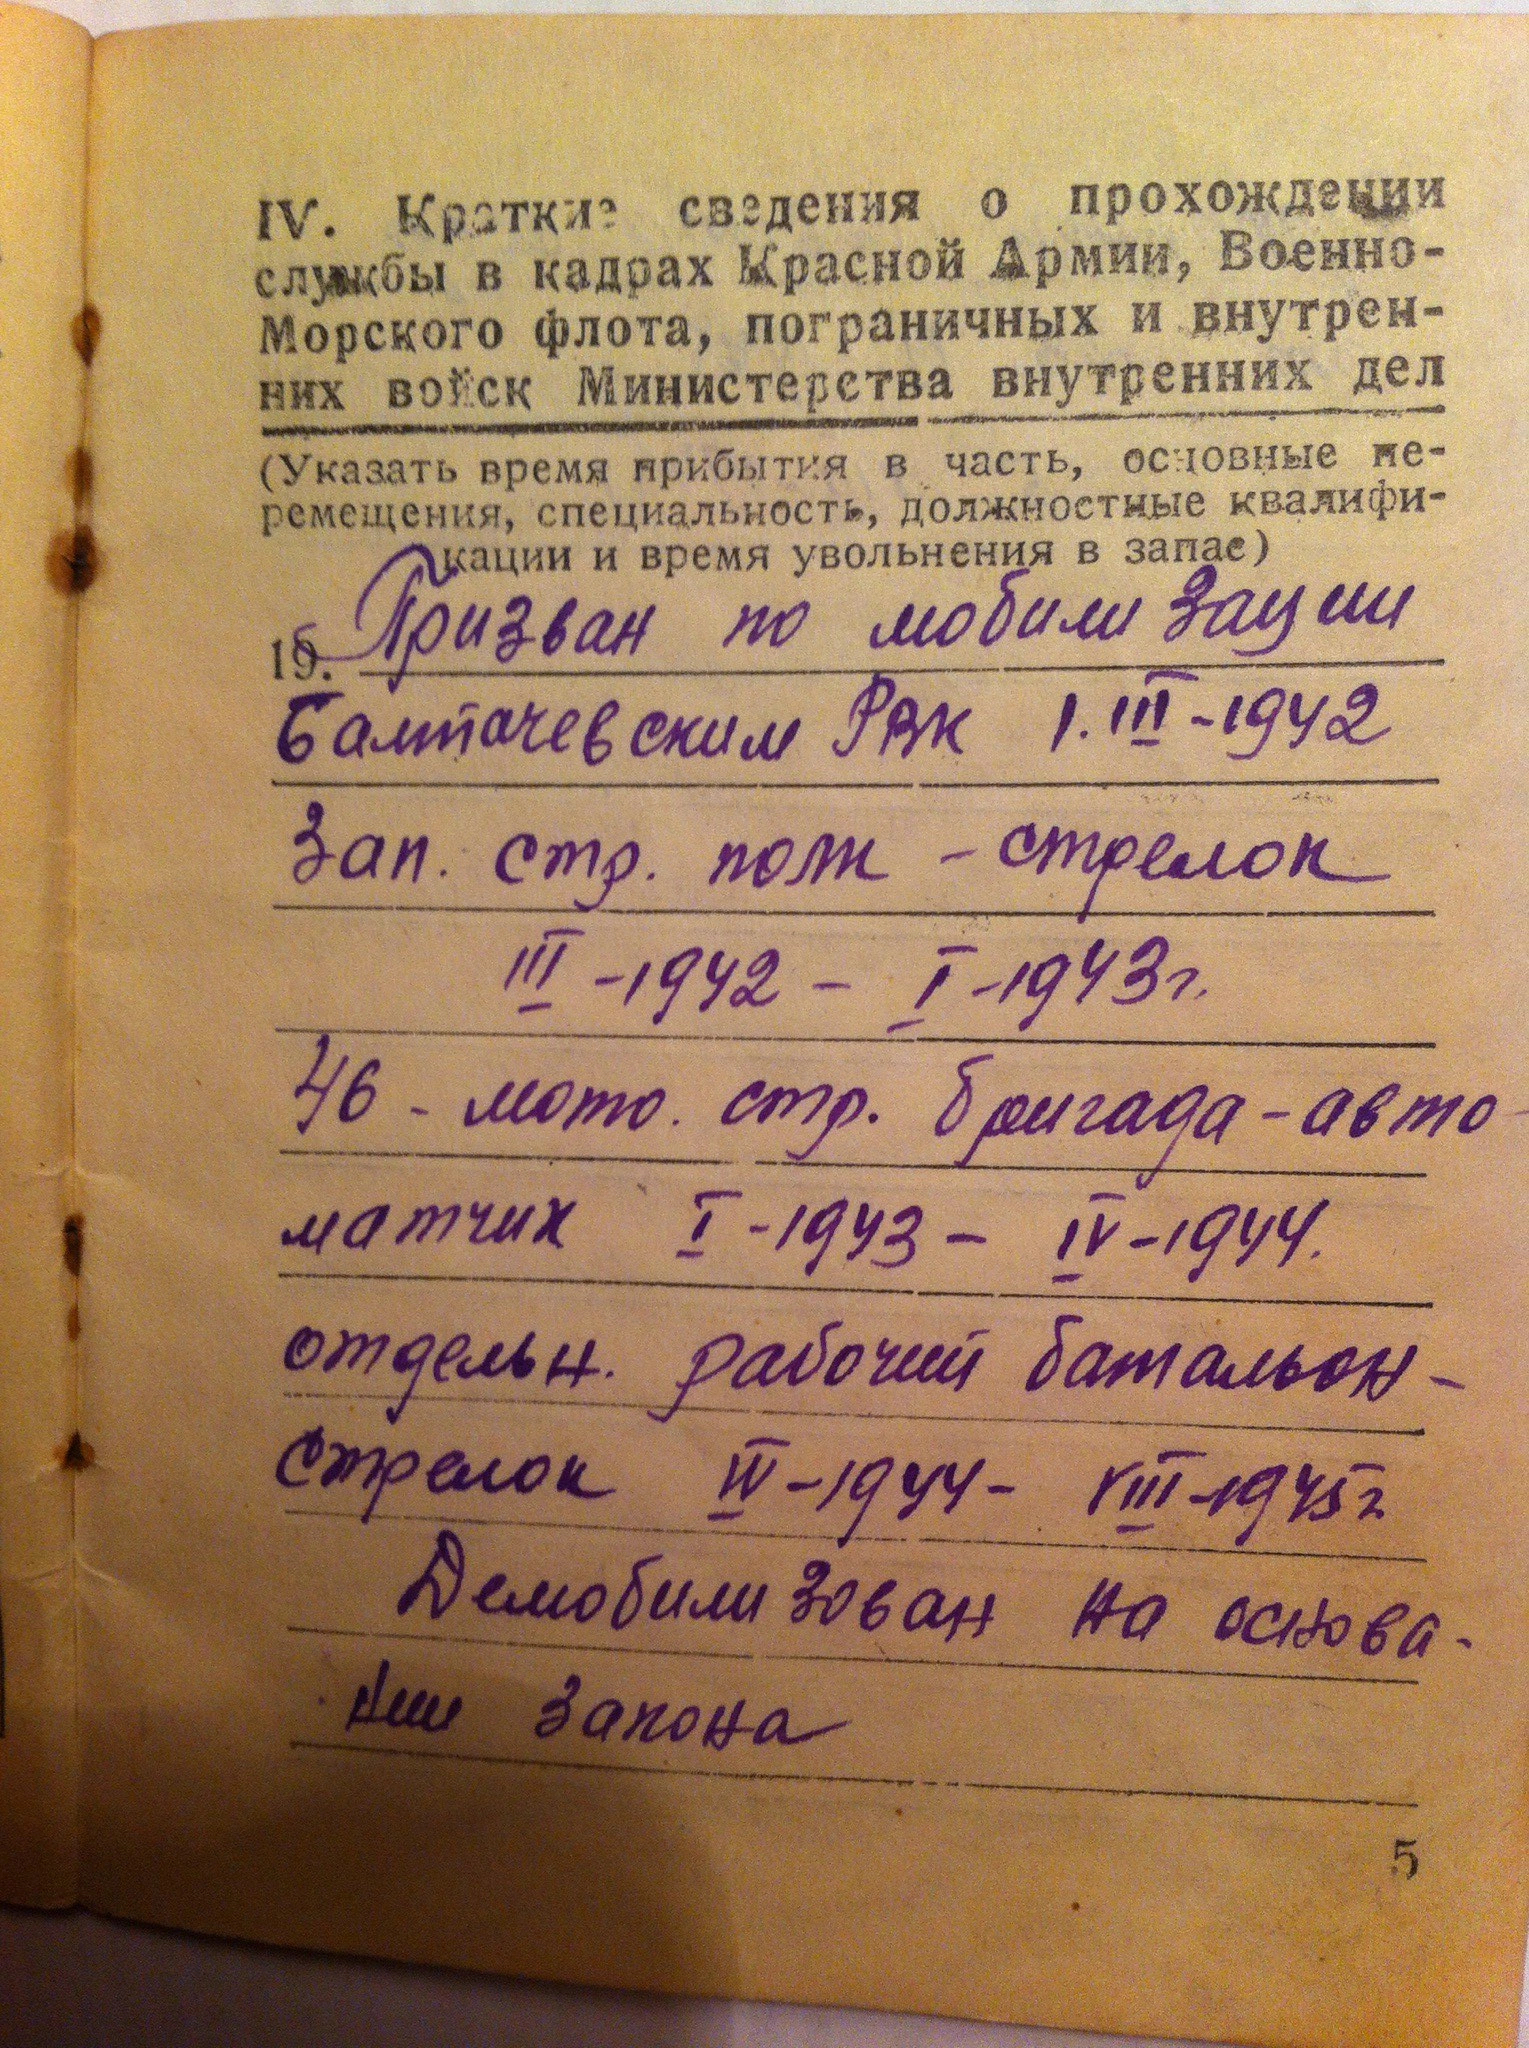 IV. Краткие сведения о прохождении
службы в кадрах Красной Армии, Военно-
Морского флота, пограничных и внутрен-
них войск Министерства внутренних дел
(Указать время прибытия в часть, основные пе-
ремещения, специальность, должностные квалифи-
кации и время увольнения в запас)
19. Призван по мобилизации
Балтачевским РВК 1.III-1942
Зап. стр. полк - стрелок
III-1942 - I-1943г.
46 - мото. стр. бригада - авто
матчик I-1943 - IV-1944.
отдельн. рабочий батальон -
стрелок IV-1944 - VIII-1945г
Демобилизован на основа-
нии Закона
5